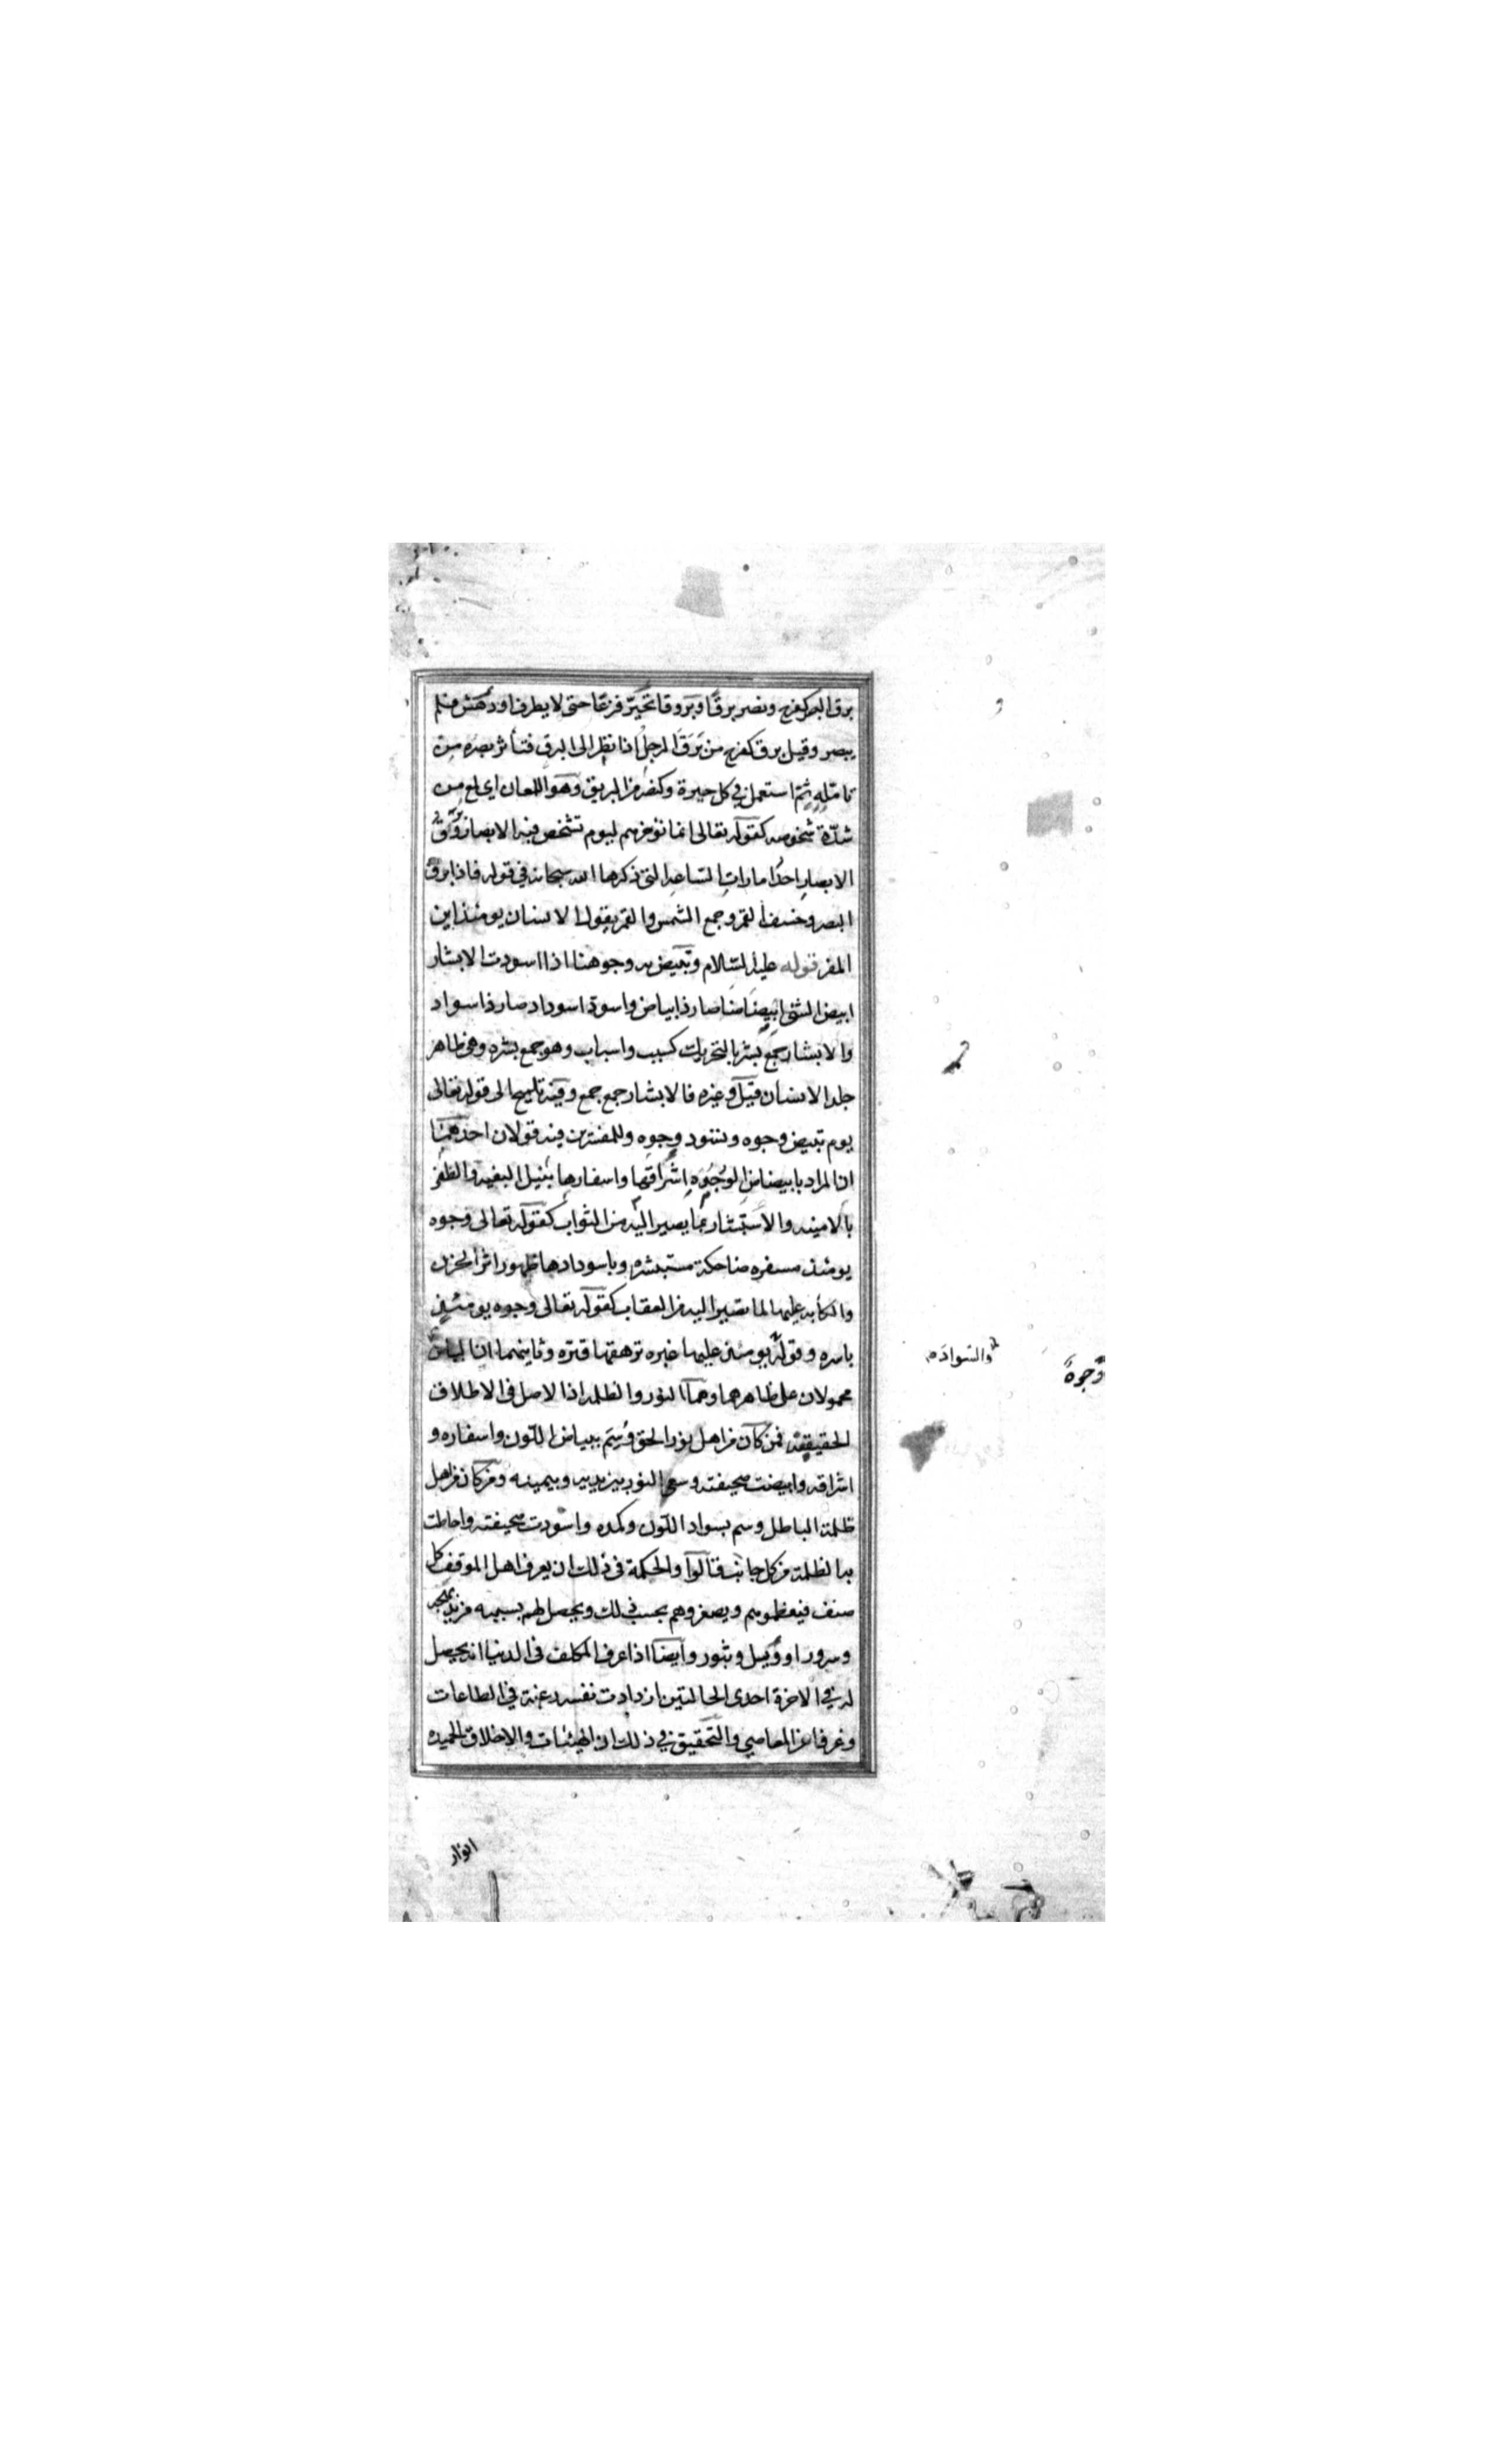 برق البصر كفرح ونصر برقا وبروقا تحير فزعا حتى لا يطرف او دهش فلم
يبصر وقيل برق كفرح من برق الرجل اذا نظر الى البرق فتأثر بصره من
تأمله ثم استعمل في كل حيرة وكنصر من البريق وهو اللمعان اي لمع من
شدة شخوصه كقوله تعالى انما نؤخرهم ليوم تشخص فيه الابصار وبرق
الابصار احد امارات الساعة التي ذكرها الله سبحانه في قوله فاذا برق
البصر وخسف القمر وجمع الشمس والقمر يقول الانسان يومئذ اين
المفر قوله عليه السلام وتبيض به وجوهنا اذا اسودت الابشار
ابيض الشئ ابيضاضا صار ذا بياض واسود اسودادا صار ذا سواد
والابشار جمع بشر بالتحريك كسبب واسباب وهو جمع بشره وهي ظاهر
جلد الانسان قيل وغيره فالابشار جمع جمع وفيه تلميح الى قوله تعالى
يوم تبيض وجوه وتسود وجوه وللمفسرين فيه قولان احدهما
ان المراد بابيضاض الوجوه اشراقها واسفارها بنيل البغيه والظفر
بالامنيه والاستبشار بما يصير اليه من الثواب كقوله تعالى وجوه
يومئذ مسفره ضاحكة مستبشره وباسودادها ظهور اثر الحزن
والكآبه عليها لما تصير اليه من العقاب كقوله تعالى وجوه يومئذ
باسره وقوله يومئذ عليها غبره ترهقها قتره وثانيهما ان البياض
والسواد
وجوه
محمولان على ظاهرهما وهما النور والظلمه اذ الاصل في الاطلاق
الحقيقه فمن كان من اهل نور الحق وسم ببياض اللون واسفاره و
اشراقه وابيضت صحيفته وسعى النور بين يديه وبيمينه ومن كان من اهل
ظلمة الباطل وسم بسواد اللون وكمده واسودت صحيفته واحاطت
به الظلمة من كل جانب قالوا والحكمة في ذلك ان يعرف اهل الموقف كل
صنف فيعظموهم ويصغروهم بحسب ذلك ويحصل لهم بسببه مزيد
وسرور او ويل وثبور وايضا اذا عرف المكلف في الدنيا انه يحصل
له في الاخرة احدى الحالتين ازدادت نفسه رغبة في الطاعات
وعن المعاصي والتحقيق في ذلك ان الهيئات والاخلاق الحميده
انوار